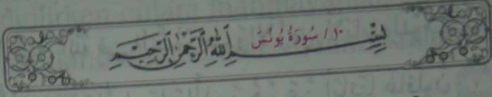 ١٠ / سُورَةُ يُونُسَ بِسْمِ اللَّهِ الرَّحْمَٰنِ الرَّحِيمِ